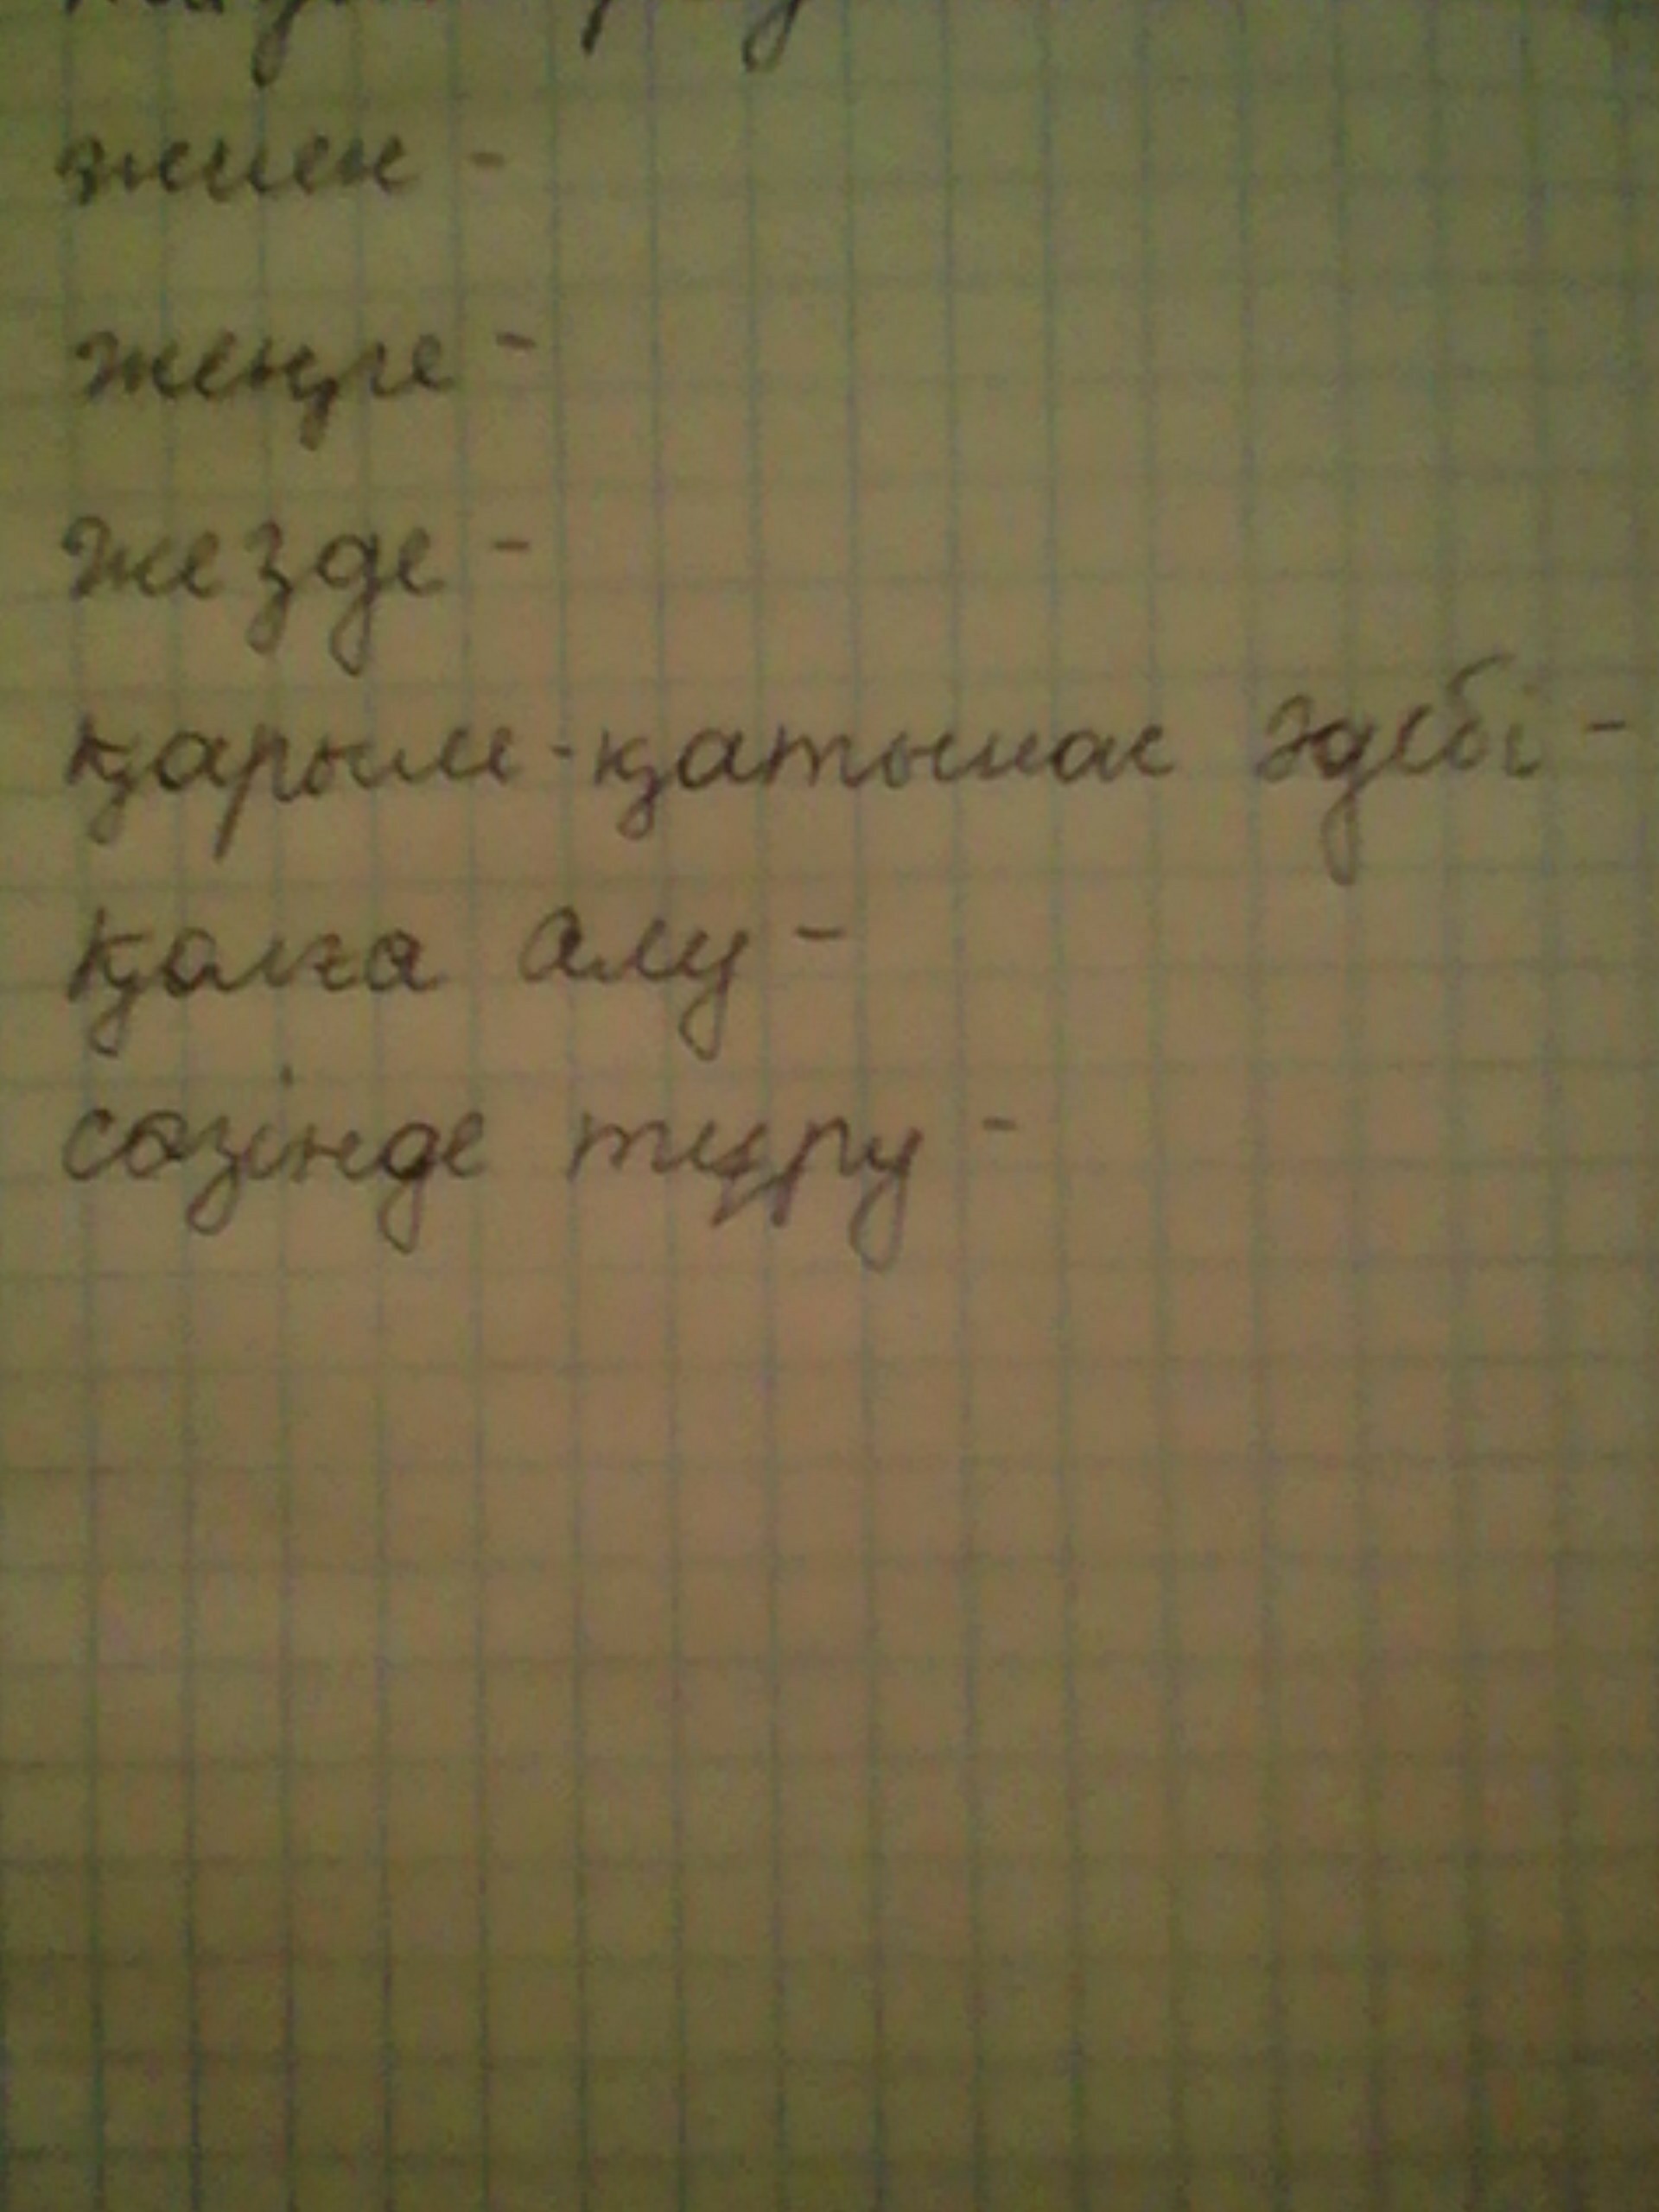 жиен -
жеңге -
жезде -
қарым-қатынас әдебі -
қолға алу -
сөзінде тұру -